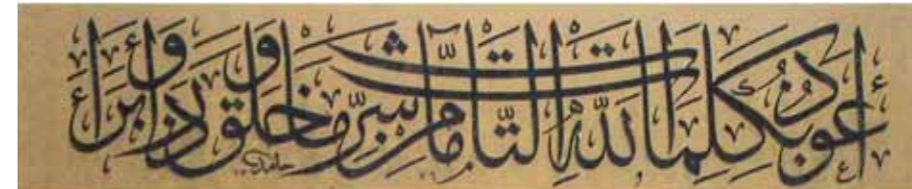 أعوذ بكلمات الله التامّات من شرّ ما خلق وذرأ وبرأ